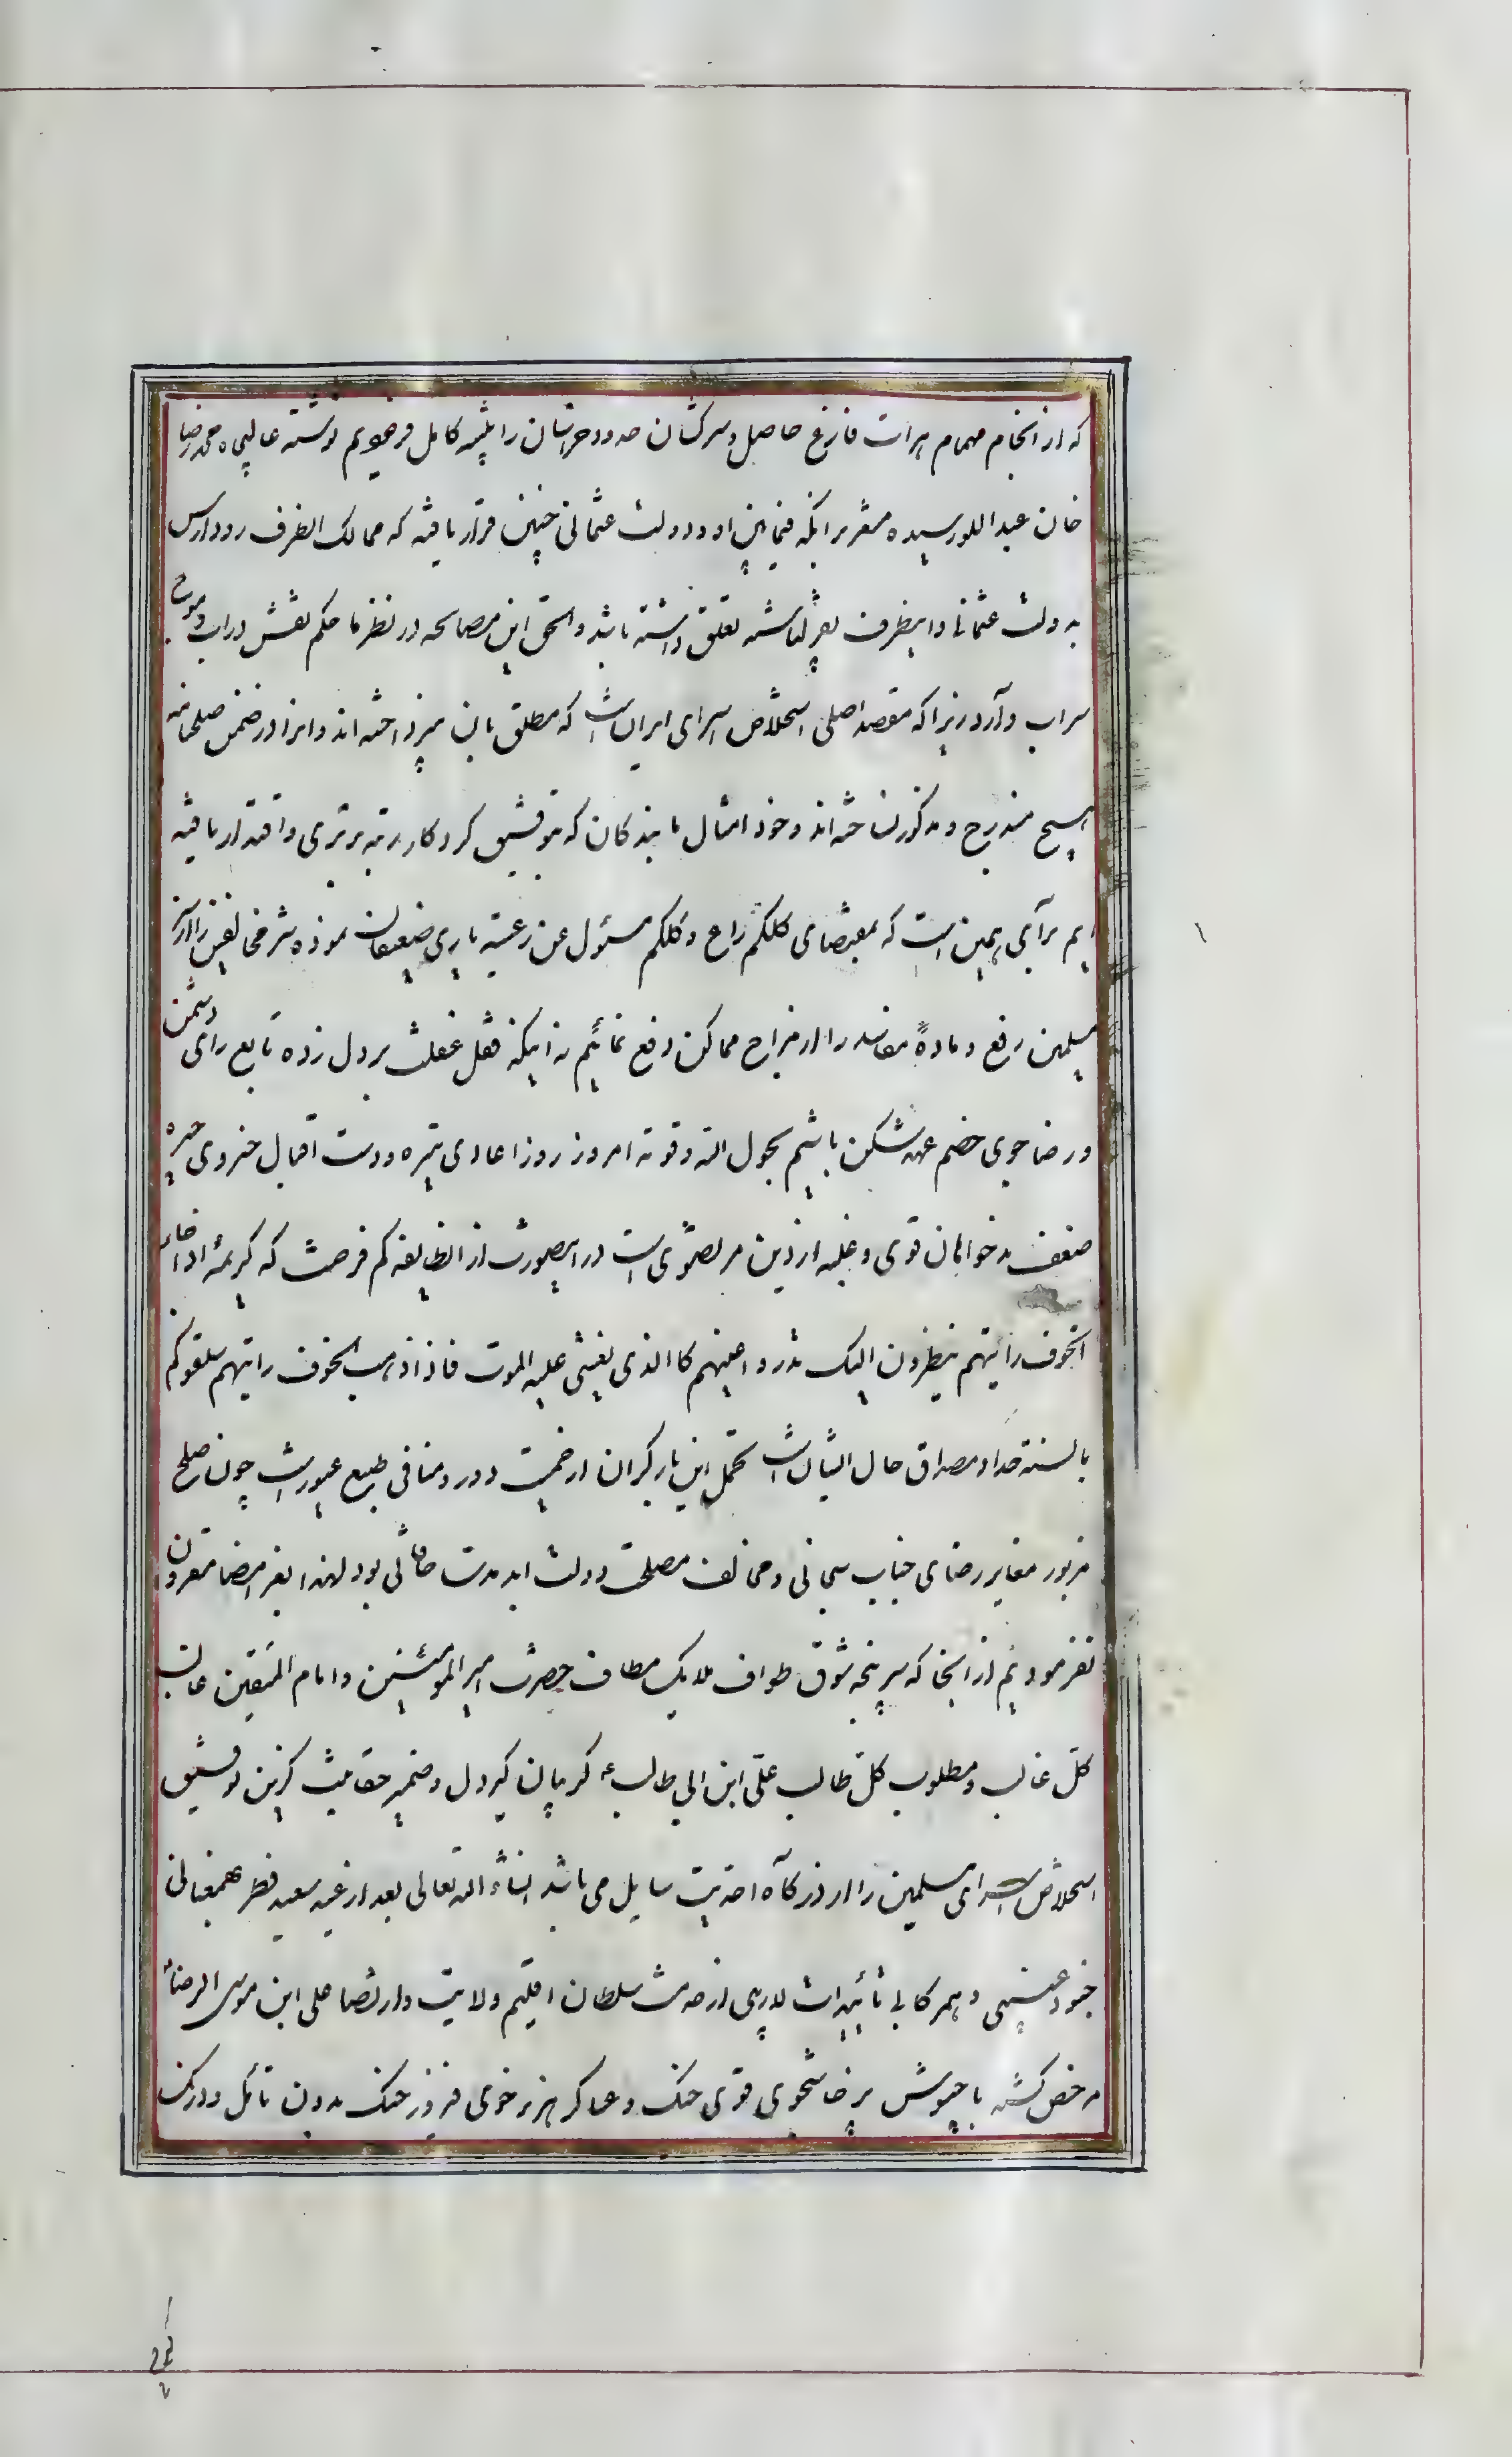 که از انجام مهمام هرات فارغ حاصل و سرکشان حدود خراسان را تنبیه کامل فرمودیم نوشته عالیجاه محمد رضا
خان عبداللو رسیده مشعر بر اینکه فیمابین او و دولت عثمانی چنین قرار یافته که ممالک انطرف رود ارس
به دولت عثمانی و اینطرف بقزلباشیه تعلق داشته باشد والحق این مصالحه در نظر ما حکم نقش در اب و موج
سراب دارد زیرا که مقصد اصلی استخلاص اسرای ایران است که مطلق بان نپرداخته اند و انرا در ضمن صلحنامه
هیچ مندرج و مذکور نساخته اند وخود امثال ما بندگان که بتوفیق کردکار رتبه برتری و اقتدار یافته
ایم برای همین است که بمقتضای کلکم راع و کلکم مسئول عن رعیته یاری ضعیفان نموده شر مخالفین را از
مسلمین رفع و مادهٔ مفاسد را از مزاج ممالک دفع نمائیم نه اینکه قفل غفلت بر دل زده تابع رای دشمن
و رضا جوی خصم عهد شکن باشیم بحول الله و قوته امروز روز اعادی تیره و دست اقبال خسروی چیره
ضعف بدخواهان قوی و غلبه از دین مرتضوی است در اینصورت از انطایفه کم فرصت که کریمهٔ اذا جاء
الخوف رایتهم ینظرون الیک تدور اعینهم کالذی یغشی علیه الموت فاذا ذهب الخوف رایتهم سلقوکم
بالسنته حداد مصداق حال ایشان است تحمل این بار گران از حمیت دور و منافی طبع غیور است چون صلح
مزبور مغایر رضای جناب سبحانی و مخالف مصلحت دولت ابد مدت خاقانی بود لهذا بعز امضا مقرون
نفرمودیم از انجا که سرپنجه شوق طواف ملایک مطاف حضرت امیر المؤمنین و امام المتقین غالب
کل غالب و مطلوب کل طالب علی ابن ابی طالب ع گریبان گیر دل و ضمیر حقانیت گزین توفیق
استخلاص اسرای مسلمین را از درگاه احدیت سایل می باشد انشاء الله تعالی بعد از عید سعید فطر بهمعنانی
جنود غیبی و همرکابی تائیدات لاریبی از خدمت سلطان اقلیم ولایت و ارتضا علی ابن موسی الرضاء
مرخص گشته با جیوش پرخاشجوی قوی جنک و عساکر هزبر خوی فیروز جنک بدون تامل و درنک